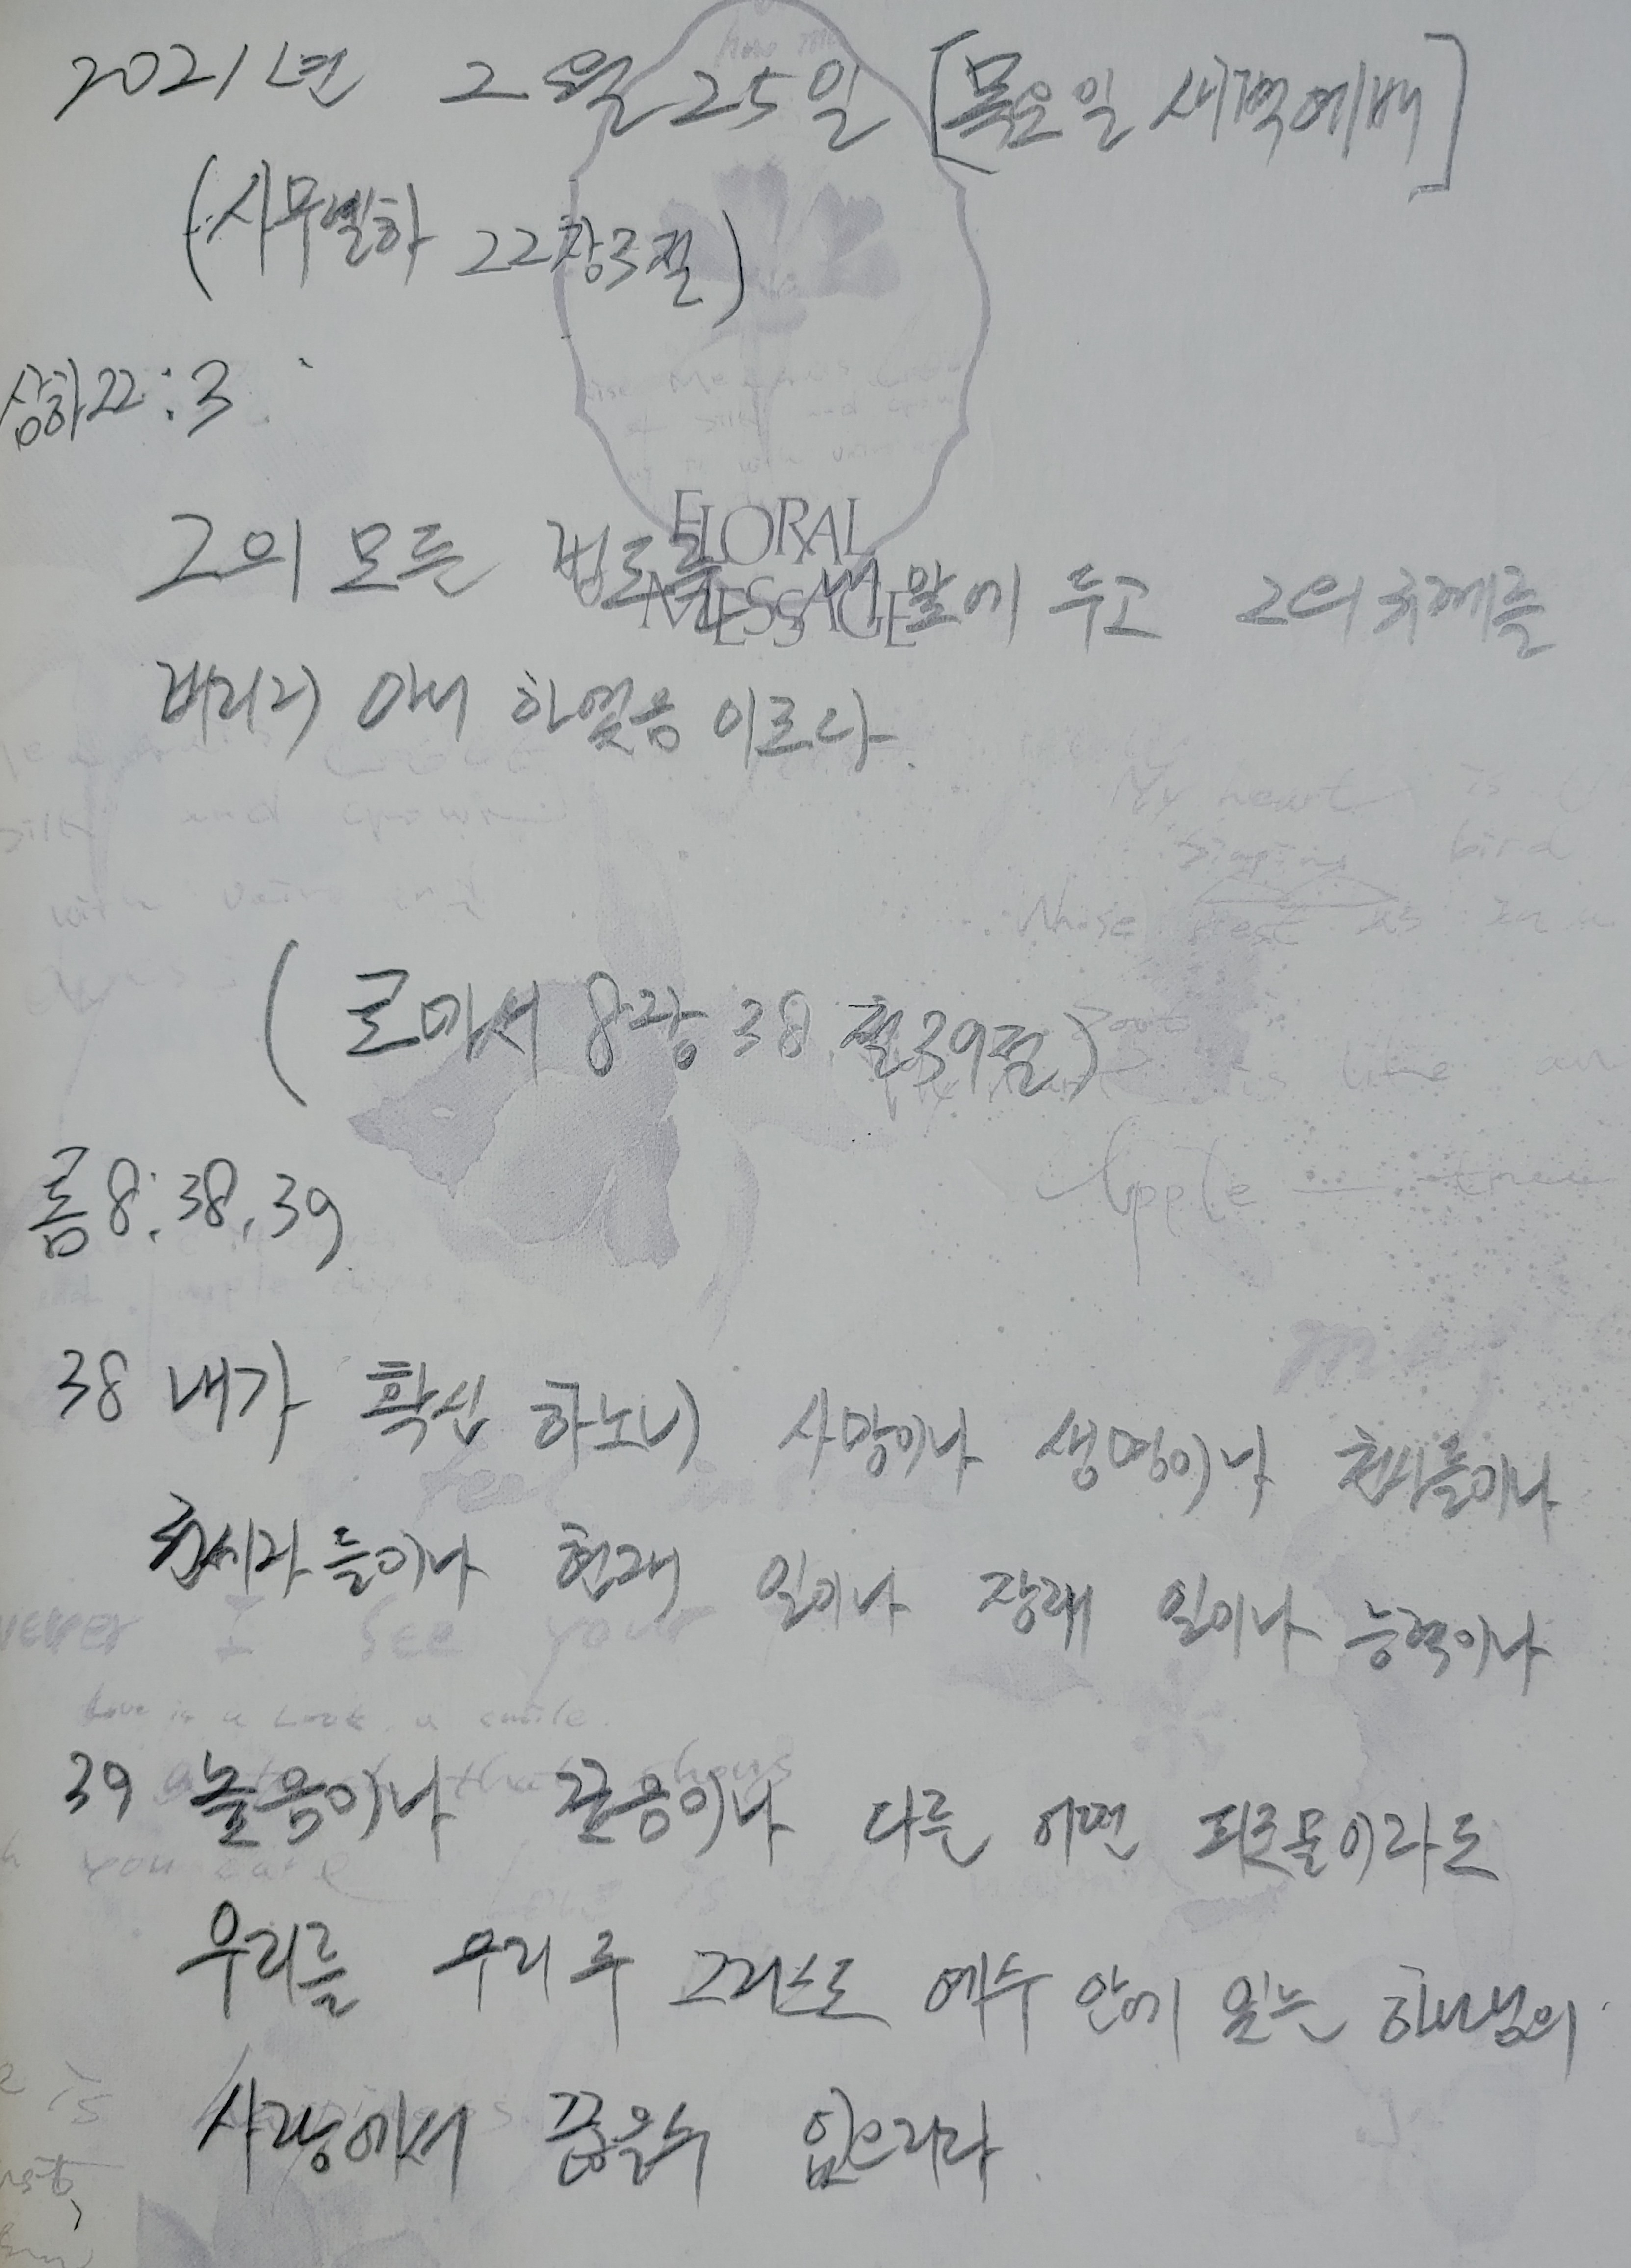 2021년 2월 25일 [목요일 새벽예배]
(사무엘하 22장3절)
삼하22:3
FLORAL
MESSAGE
그의 모든 법도를 내 앞에 두고 그의 규례를
버리지 아니 하였음 이로다.
My heart is
singing bird
Whose nest is in a
is like an
apple tree
(로마서 8장 38절39절)
롬8:38,39
38 내가 확신 하노니 사망이나 생명이나 천사들이나
권세자들이나 현재 일이나 장래 일이나 능력이나
I see your
Love is a look, a smile.
39 높음이나 깊음이나 다른 어떤 피조물이라도
you care
우리를 우리 주 그리스도 예수 안에 있는 하나님의
사랑에서 끊을수 없으리라.